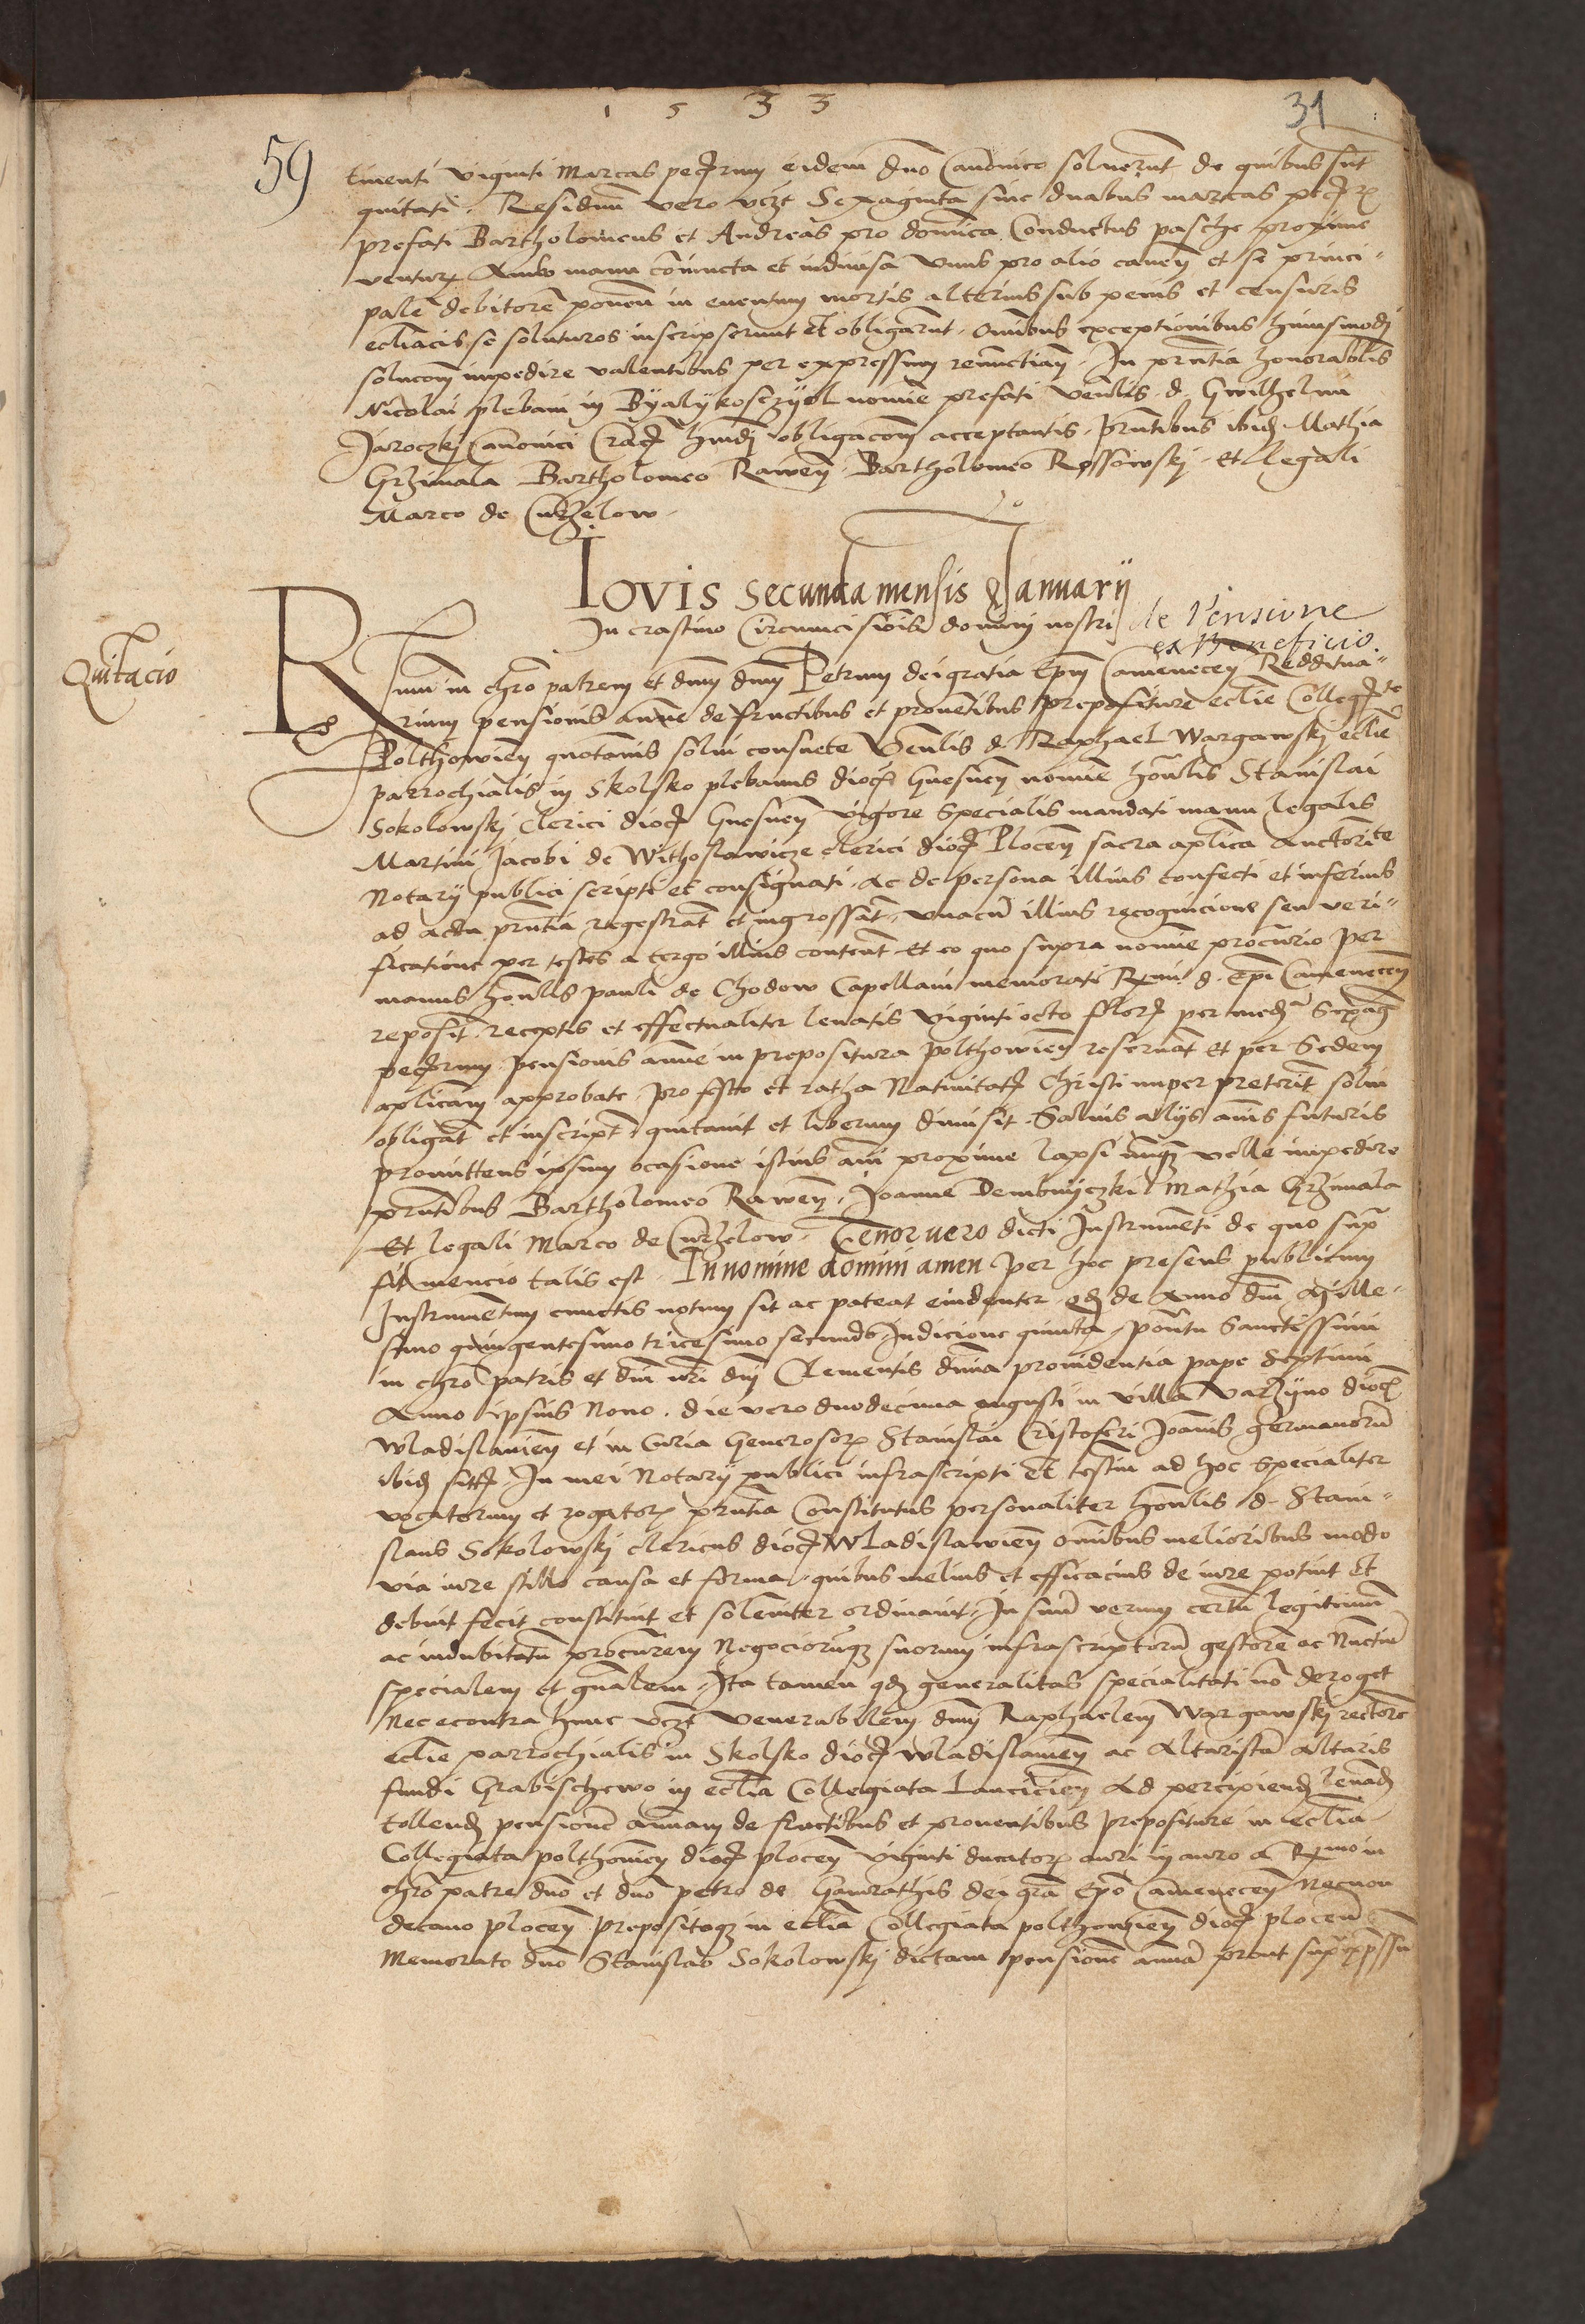 1533
31
59
tinenti viginti marcas pecuniarum eidem dno Canonico solverunt de quibus sunt
quitati. Residuum vero vczt Sexaginta sine duabus marcas
prefati Bartholomeus et Andreas pro dominica Conductus pasche proxime
ventur Ambo manu coniuncta et indivisa unus pro alio caven et se princi-
palem debitorem ponen in eventum mortis alterius sub penis et censuris
eccliacis se soluturos inscripserunt et obligarunt. omnibus exceptionibus huiusmodi
solucom impedire valentibus per expressum renunctian. In prntia honorabilis
Nicolai plebani in Byalykosczyol nomine prefati Venlis d. Gwilhelmi
Jaroczkj Canonici obligacom acceptantis. Prntibus ibid Mathia
Grzimala Bartholomeo Rawen. Bartholomeo Rossowskj et legali
Marco de Curzelow.
Iovis secunda mensis Januarij
In crastino Circumcisionis domini nostri
de Pensione
ex Beneficio.
Quitacio
R mum in chro patrem et dnm dnm Petrum dei gratia Epm Camenecen Redditua-
rium pensionis annue de fructibus et proventibus prepositure eclie Collegte
Polthowien quotannis solui consuete Venlis d. Raphael Wargawskj eclie
parrochialis in Skolsko plebanus dioc Gnesnen nomine honlis Stanislai
Sokolowskj Clerici dioc Gnesnen vigore specialis mandati manu legalis
Martini Jacobi de Withoslawicze clerici dioc Plocen sacra aplica auctorite
Notarij publici scripti et consignati. ac de persona illius confecti et inferius
ad acta prntia regestrat et ingrossat. unacum illius recognicione seu veri-
ficatione per testes a tergo illius content. Et eo quo supra nomine procurio per
manus honlis Pauli de Chodow Capellani memorati Rmi d. Epi Camenecen
reposit. receptis et effectualiter levatis viginti octo flor per med Sexag
pecuniarum pensionis annue in prepositura polthowien reservat et per Sedem
aplicam approbate. pro festo et ratha Nativitatis Christi nuper preterit solui
obligat et inscript. quitavit et liberum dimisit. Salvis alijs annis futuris
promittens ipsum ocasione istius anni proxime lapsi nunq velle impedire
prntibus Bartholomeo Rawen. Joanne Dembnyczki Mathia Grzimala
Et legali Marco de Curzelow. Tenor vero dicti Instrumenti de quo supra
fit mencio talis est. In nomine domini amen per hoc presens publicum
Instrumentum cunctis notum sit ac pateat evidenter. qd de Anno dni Mille-
simo quingentesimo tricesimo secundo Indicione quinta. pontu Sanctissimi
in chro patris et dni nri dni Clementis divina providentia pape Septimi
Anno ipsius Nono. die vero duodecima augusti in villa Varzyno dioc
Wladislavien et in Curia Generosor Stanislai Cristoferi Joannis germanorum
ibid sit. In mei Notarij publici infrascripti et testium ad hoc specialiter
vocatorum et rogator prntia Constitutus personaliter honlis d. Stani-
slaus Sokolowskj clericus dioc Wladislawien omnibus melioribus modo
via iure stillo causa et forma. quibus melius et efficacius de iure potuit et
debuit fecit constituit et solenniter ordinavit. In suum verum certum legitimum
ac indubitatum procurem Negociorumq suorum infrascriptorum gestorem ac Nunctium
specialem et gnalem. Ita tamen qd generalitas specialitati non deroget
Nec econtra hunc vczt venerabilem dnm Raphaelem Wargawskj rectorem
eclie parrochialis in Skolsko dioc Wladislavien ac Altaristam altaris
fundi Grabischewo in eclia Collegiata Lancicien Ad percipiend levand
tollend pensionem annuam de fructibus et proventibus prepositure in eclia
Collegiata polthovien dioc plocen viginti ducator auri in auro a Rmo in
chro patre dno et dno petro de Gamrathis dei gra Epo Camenecen Necnon
decano plocen prepositoq in eclia Collegiata polthowien dioc plocen
Memorato dno Stanislao Sokolowskj dictam pensionem annuam prout supra